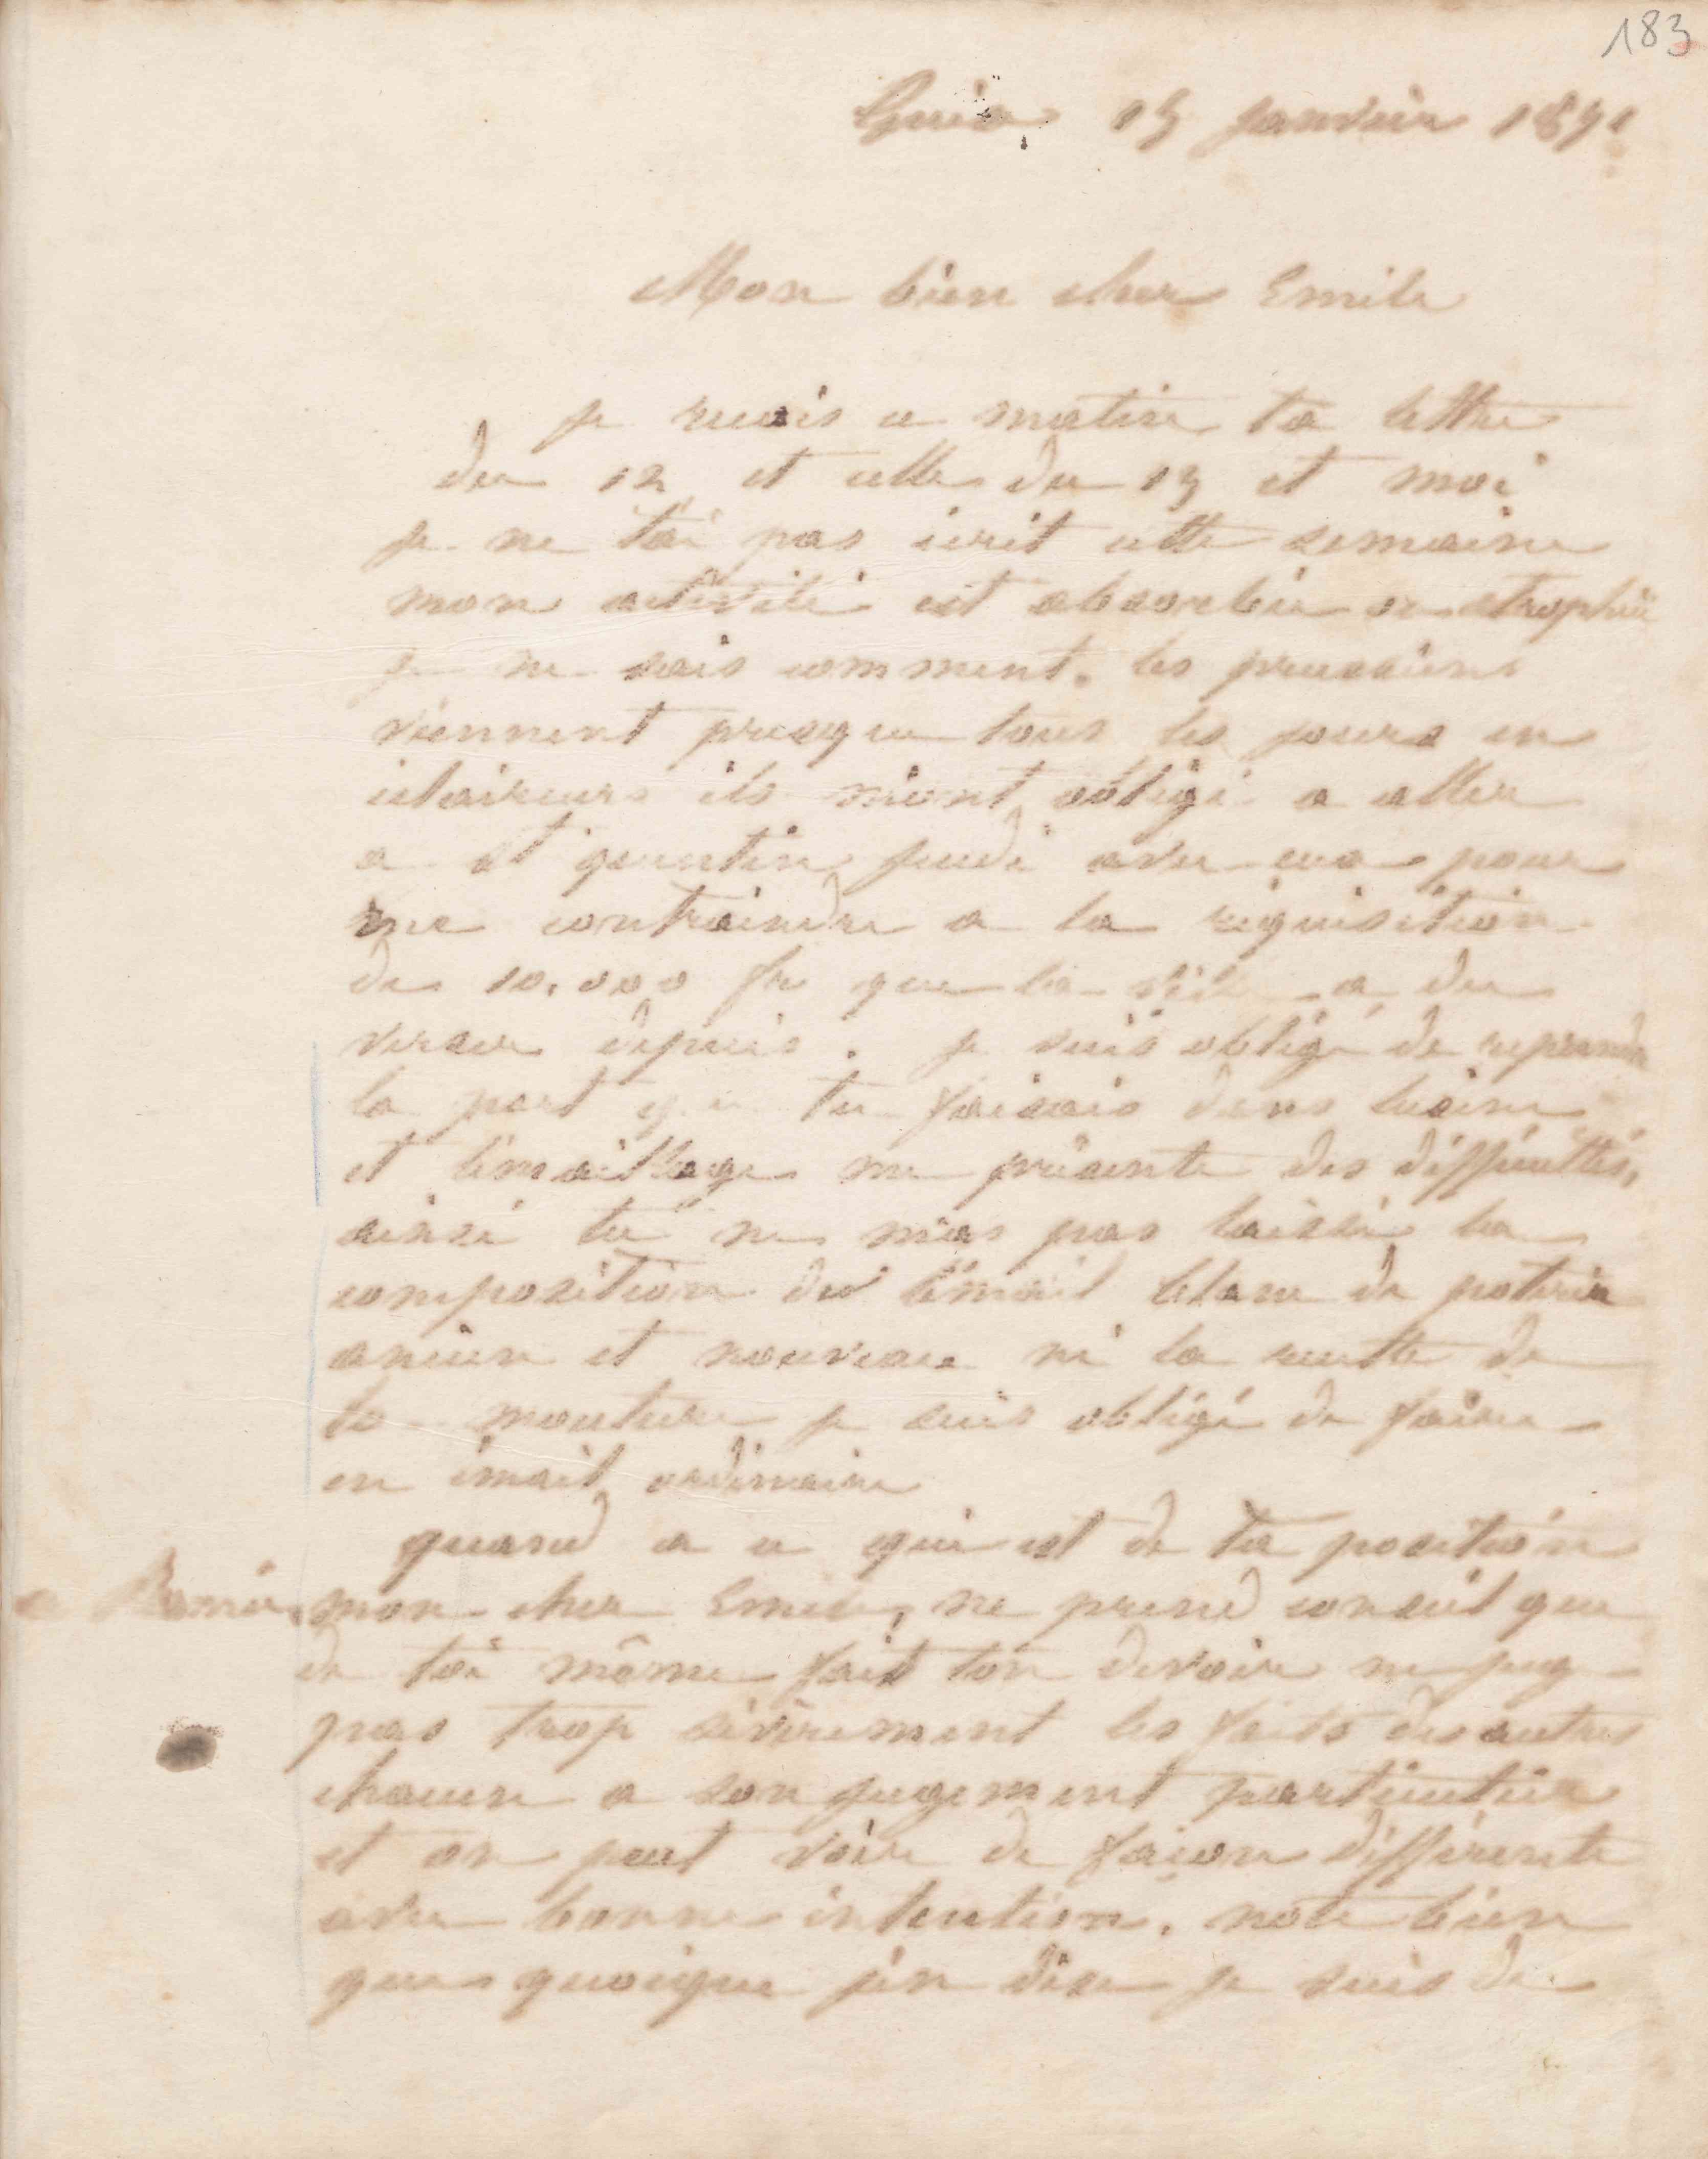 183
Guise 15 janvier 1871
Mon bien cher Emile
je reçois ce matin ta lettre
du 12 et celle du 13 et moi
je ne t'ai pas écrit cette semaine
mon activité est absorbée ou atrophiée
je ne sais comment. les prussiens
viennent presque tous les jours en
éclaireurs ils m'ont obligé a aller
a St quentin jeudi avec eux pour
me contraindre a la réquisition
de 10.000 fr que la ville a du
verser depuis. je suis obligé de reprendre
la part que tu faisais dans l'usine
et l'émaillage me présente des difficultés,
ainsi tu ne m'as pas laissé la
composition de l'émail blanc de poterie
ancien et nouveau ni la recette de
la mouture je suis obligé de faire
en émail ordinaire
quand a ce qui est de ta position
mon cher Emile, ne prend conseil que
de toi même fait ton devoir ne juge
pas trop sévèrement les faits des autres
chacun a son jugement particulier
et on peut voir de façon différente
avec bonne intention. note bien
que quoique j'en dise je suis de